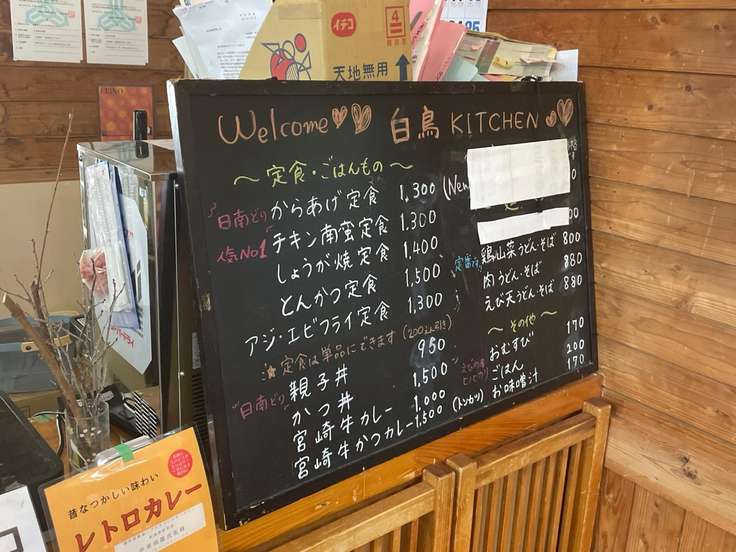 イチコ
天地無用
Welcome
白鳥 KITCHEN
〜定食・ごはんもの〜
日南どり からあげ定食 1,300 (New
人気No1 チキン南蛮定食 1.300
しょうが焼定食 1.400
とんかつ定食 1,500
アジ・エビフライ定食 1,300
定食は単品にできます (200えん引き)
親子丼 950
"日南どり" かつ丼 1,500
宮崎牛カレー 1.000
宮崎牛かつカレー 1,500 (トンカツ)
定番です 鶏山菜うどん・そば 800
肉うどん・そば 880
えび天うどん・そば 880
〜その他〜
おむすび 170
ごはん 200
お味噌汁 170
昔なつかしい味わい
レトロカレー